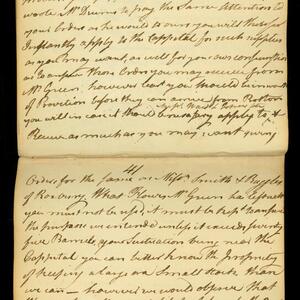 wrote Mr Dunn to pay the Same Attention to
your Orders as he would to ours you will therefore
Instantly apply to the Capital for such supplies
as you may want, as well for your own consumption
as to answer those Orders you may receive from
Mr Green, however least you should be in want
of Provision before they can arrive from Boston
you will in case it should be necessary apply to
Receive as much as you may want giving
41
Orders for the Same on Messrs Smith & Ruggles
of Roxbury. What Flour Mr Green has left with
you must not be used, it must be kept to answer
the purpose we intended unless it exceeds seventy
five Barrels, your Situation being near the
Cappital you can better know the propriety
of keeping a large or a Small Stock than
we can — however we would observe that